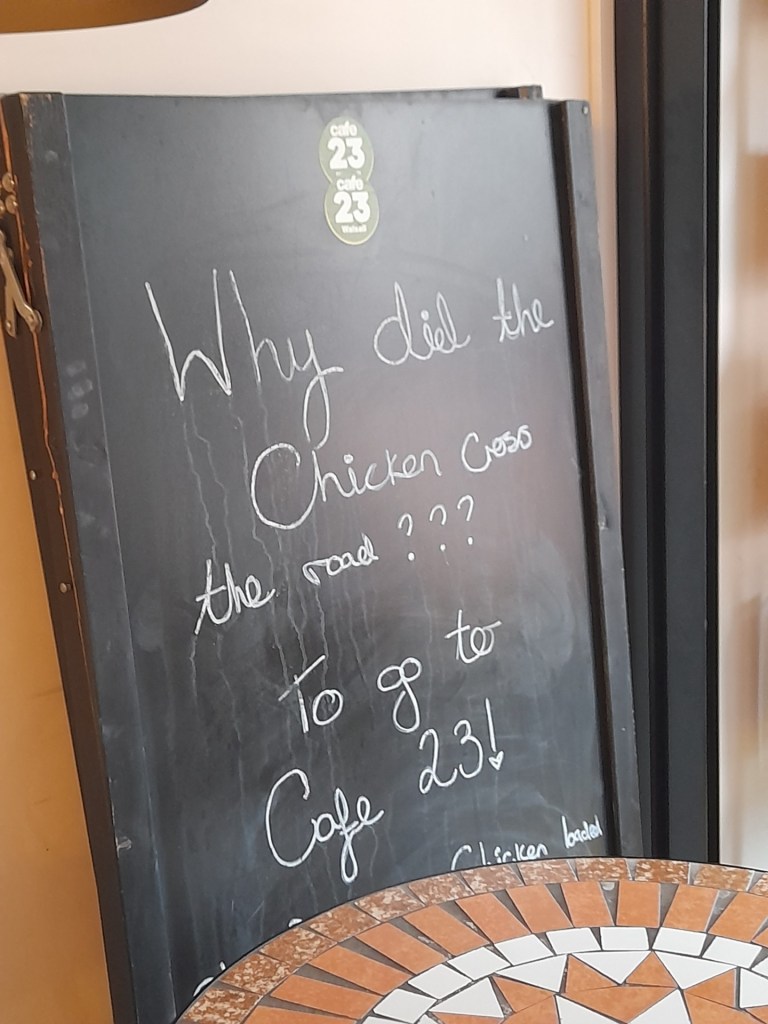 cafe
23
cafe
23
Walsall
Why did the
Chicken Cross
the road ???
To go to
Cafe 23!
Chicken loaded